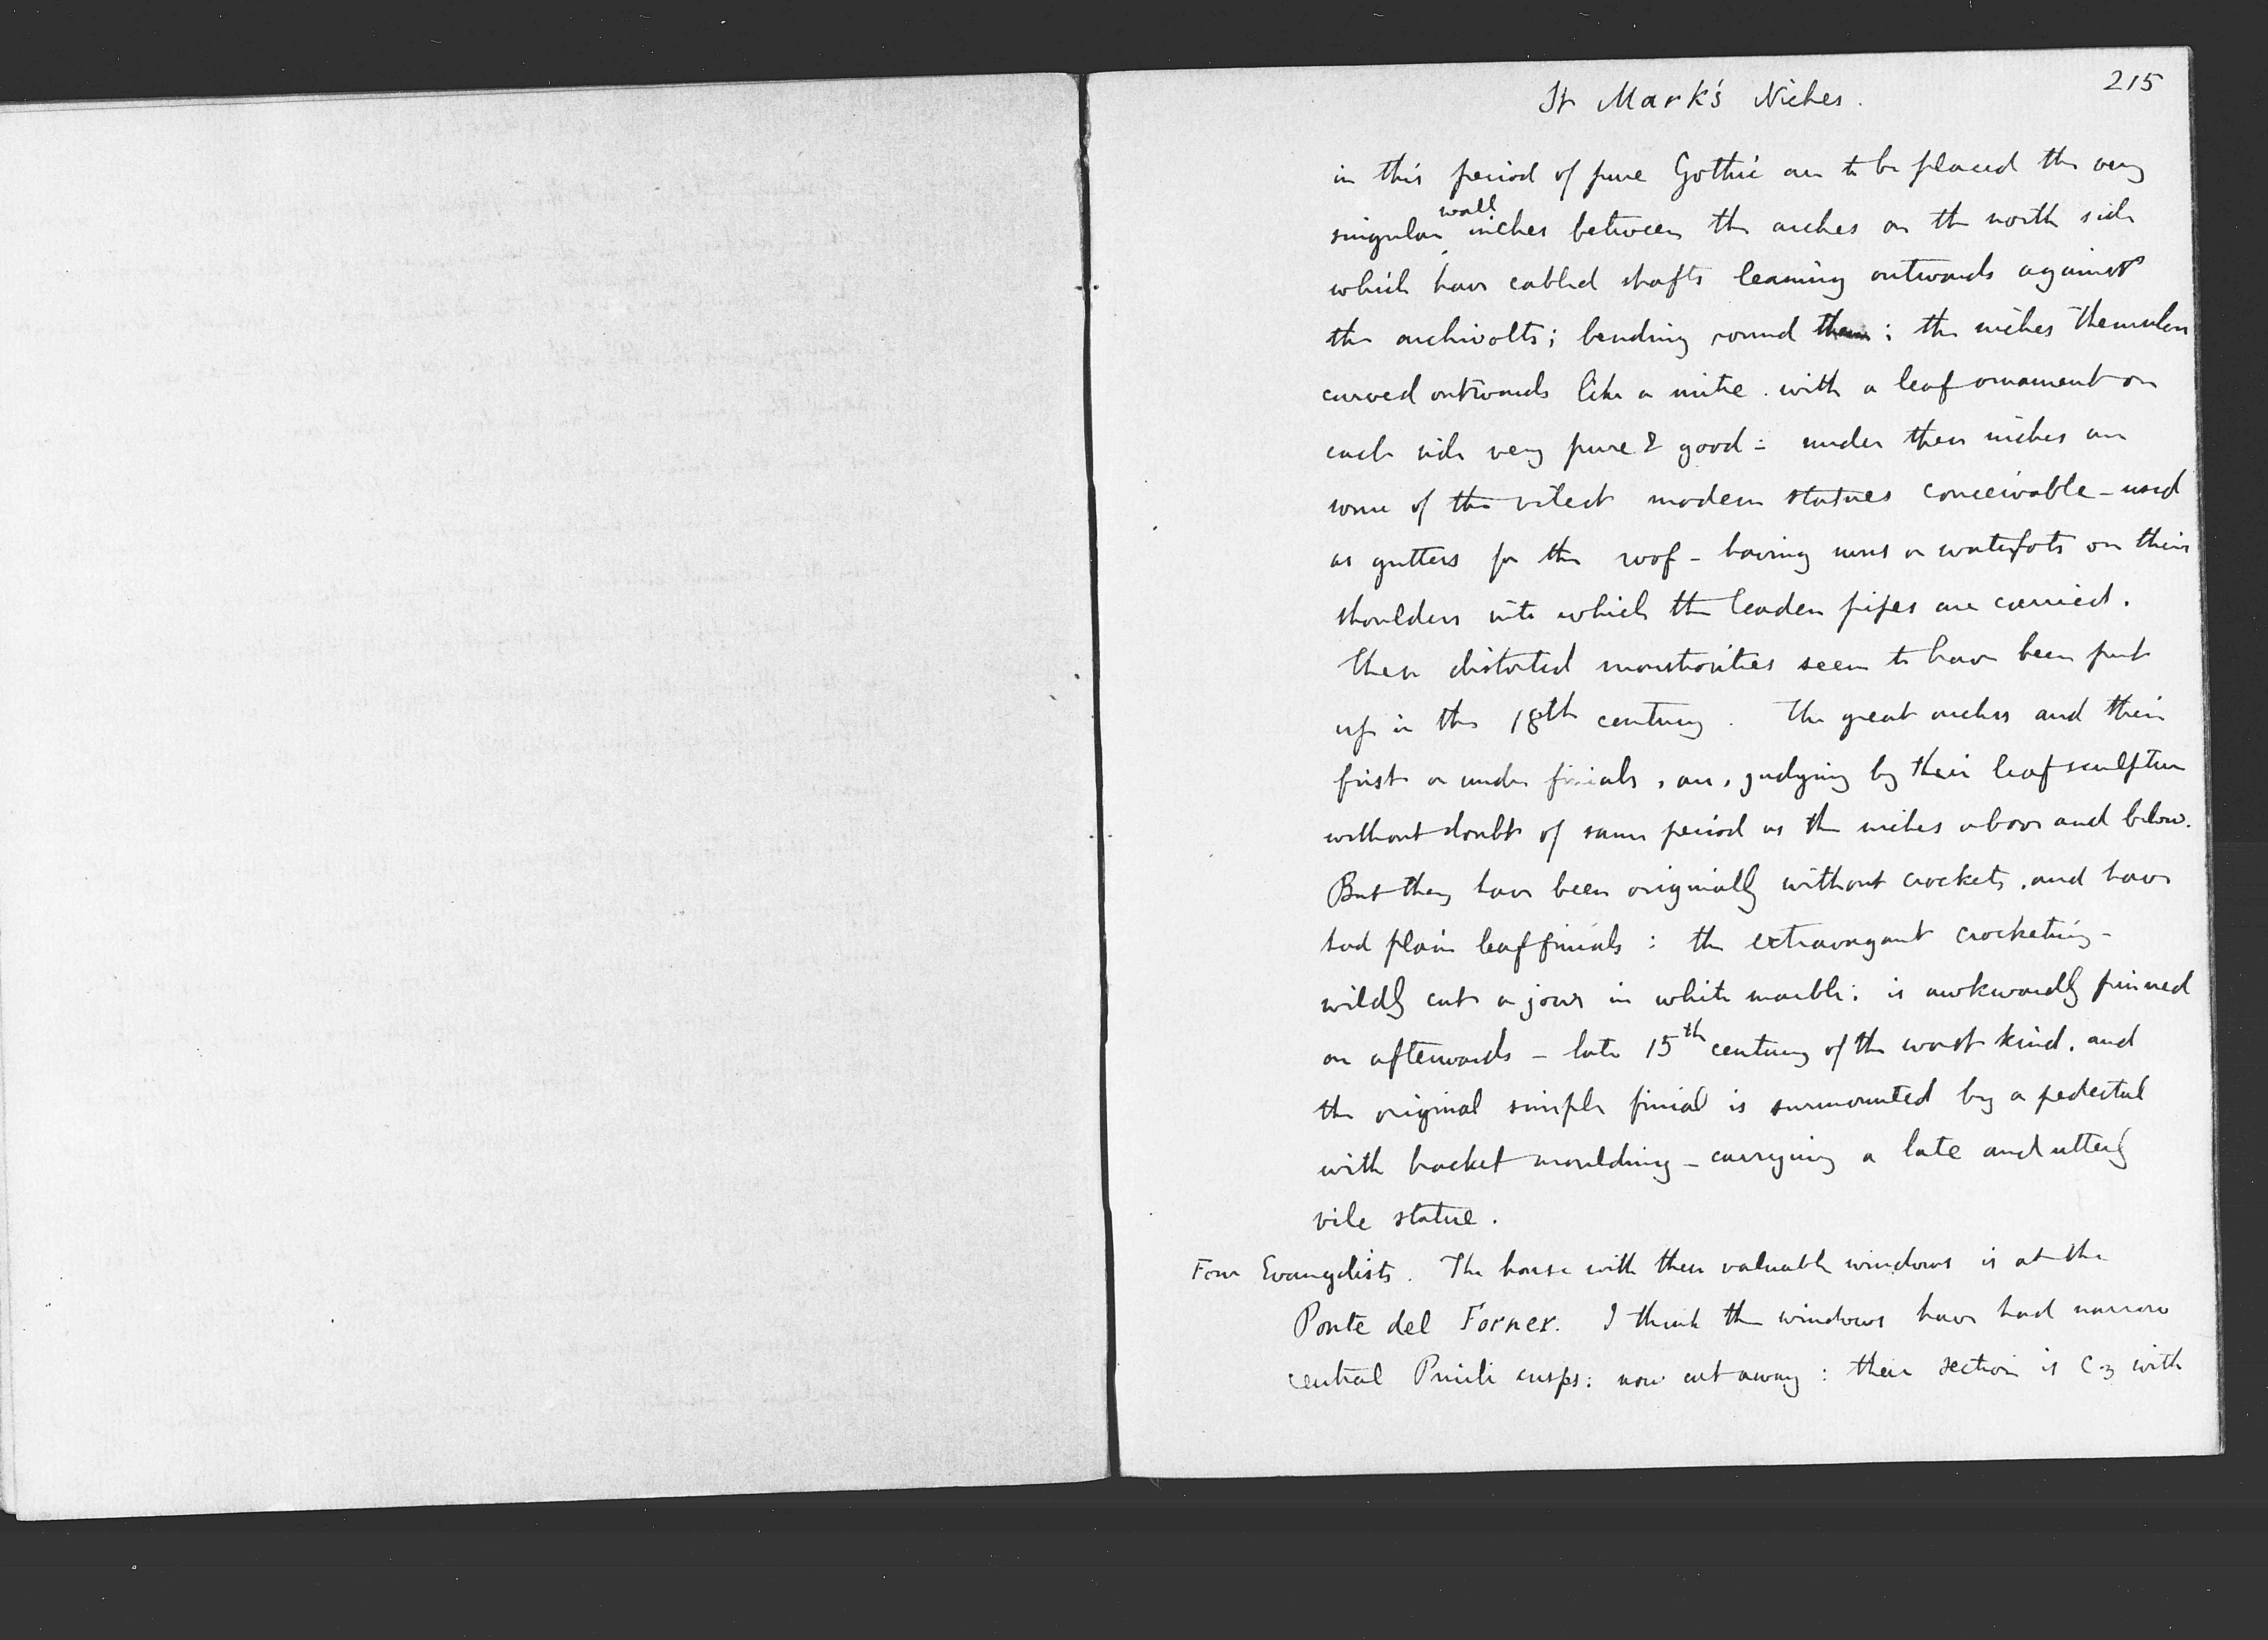 215
St Mark's Niches.
in this period of pure Gothic are to be placed the very
wall
singular niches between the arches on the north side
which have cabled shafts leaning outwards against
the archivolts; bending round them; the niches themselves
curved outwards like a mitre. with a leaf ornament on
each side very pure & good: under these niches are
some of the vilest modern statues conceivable - used
as gutters for the roof - having urns or waterpots on their
shoulders into which the leaden pipes are carried.
These distorted monstrosities seem to have been put
up in the 18th century. The great arches and their
first or under finials, are, judging by their leaf sculpture
without doubt of same period as the niches above and below.
But they have been originally without crockets, and have
had plain leaf finials: the extravagant crocketing -
wildly cut a jour in white marble: is awkwardly pinned
on afterwards - late 15th century of the worst kind, and
the original simple finial is surmounted by a pedestal
with bracket moulding - carrying a late and utterly
vile statue.
Four Evangelists. The house with these valuable windows is at the
Ponte del Forner. I think the windows have had narrow
central Priuli cusps: now cut away: their section is C3 with